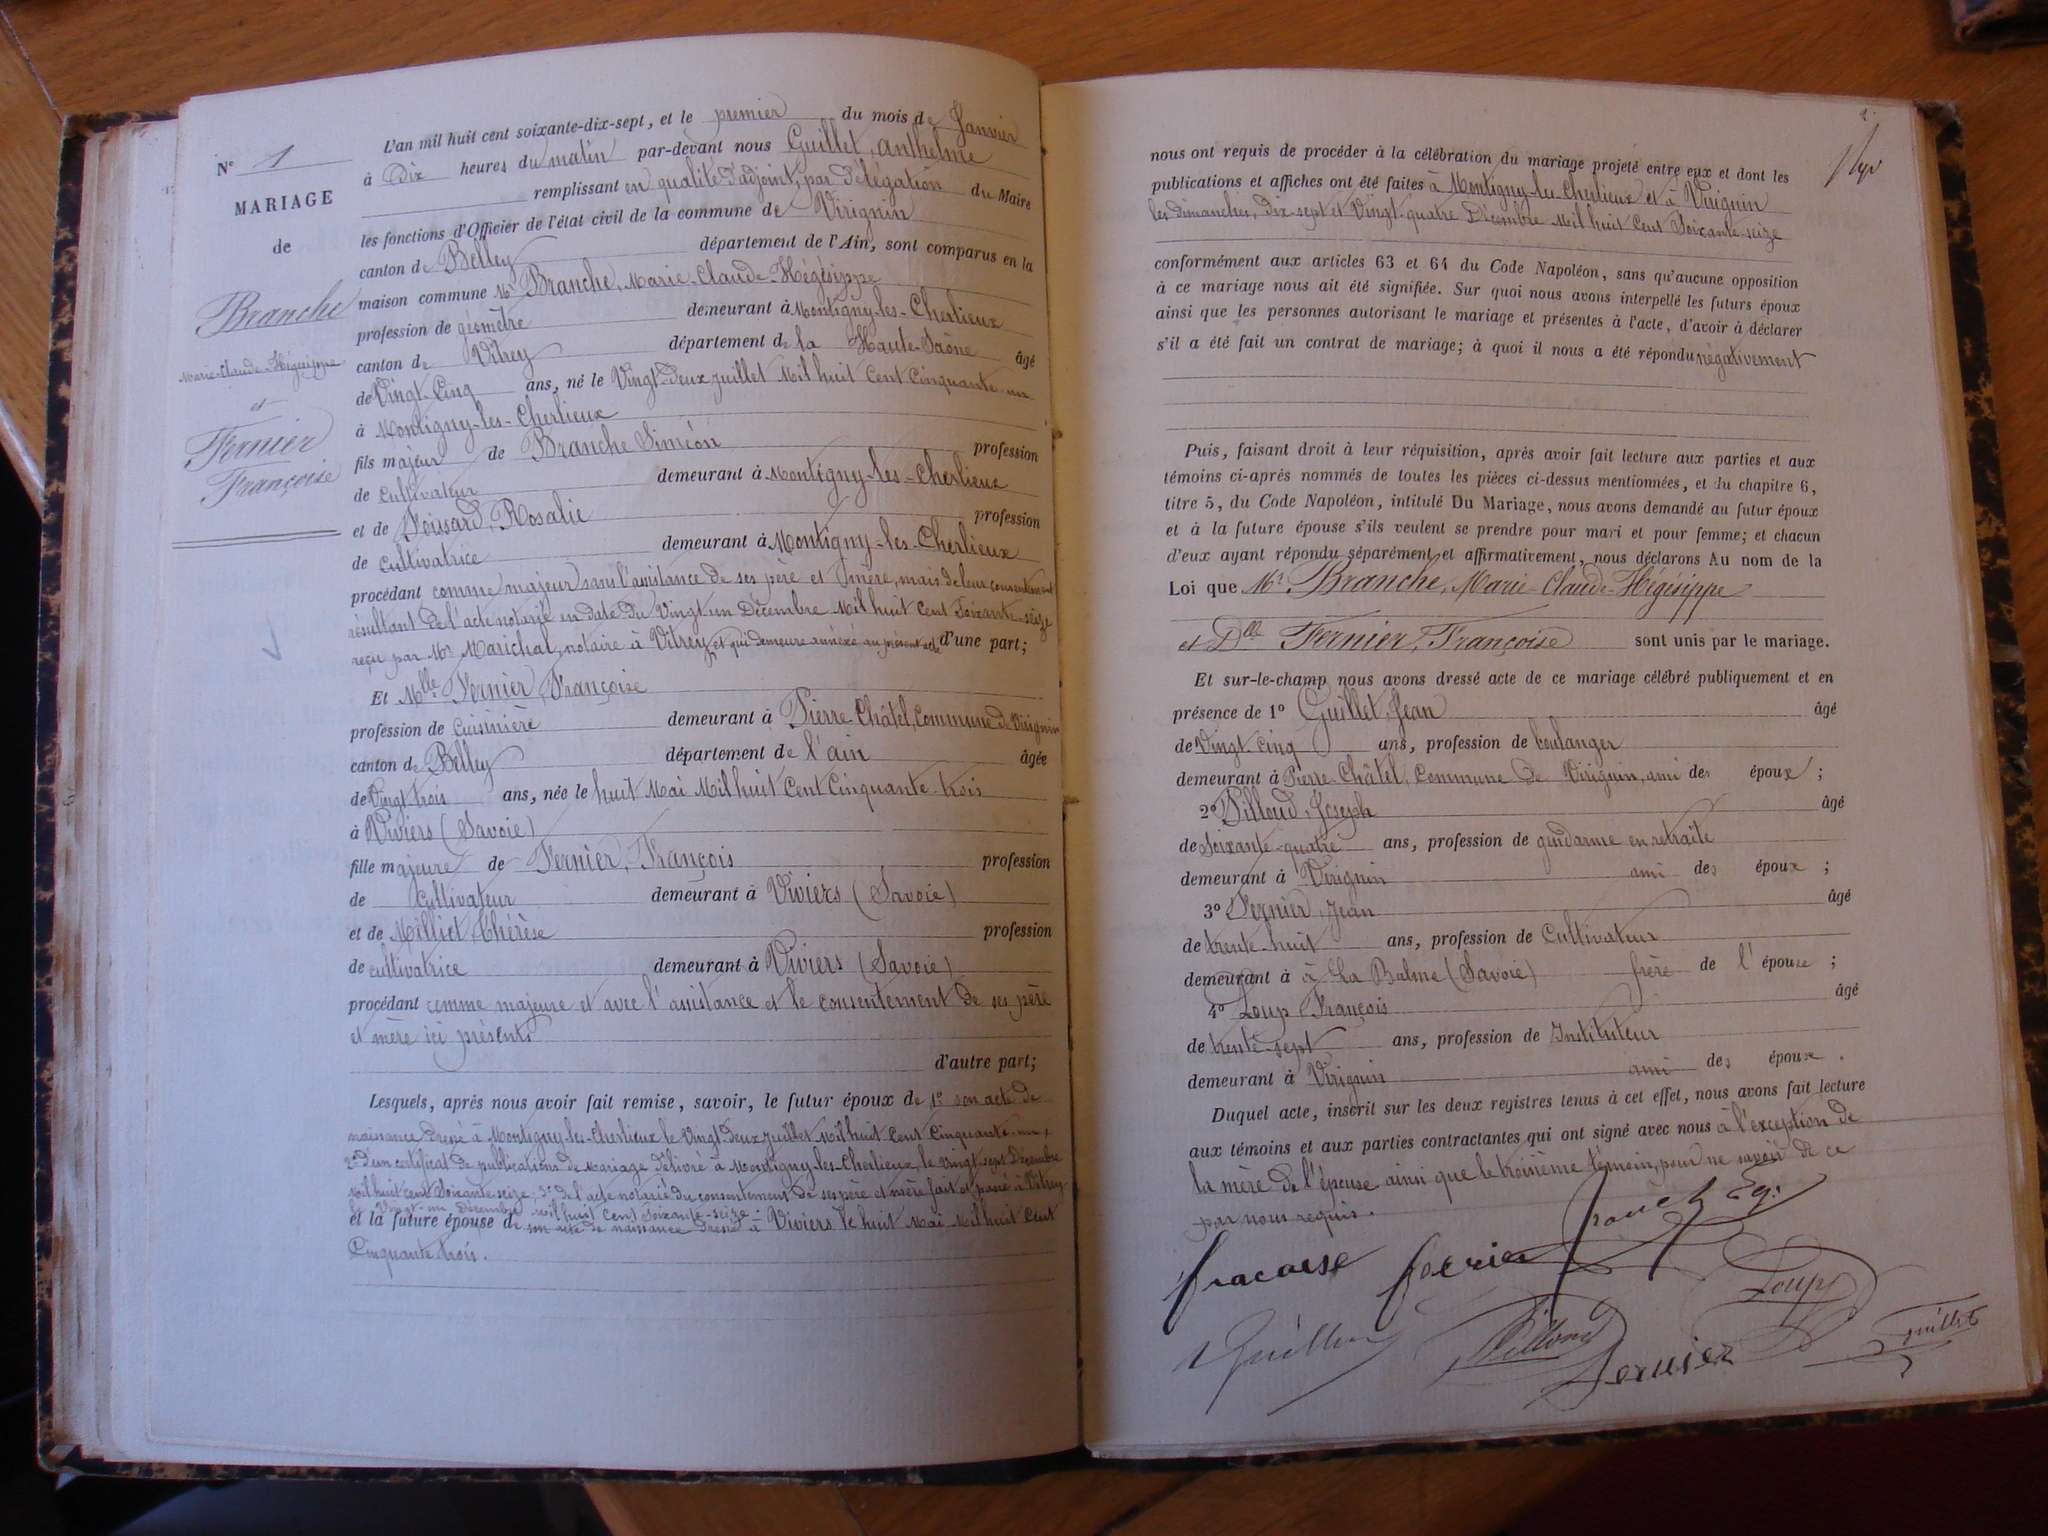 N° 1
MARIAGE
de
Branche
Marie-Claude-Hégésippe
et
Fernier
Françoise
L'an mil huit cent soixante-dix-sept, et le premier du mois de Janvier
à Dix heures du matin par-devant nous Guillet, anthelme
remplissant en qualité d'adjoint, par délégation du Maire
les fonctions d'Officier de l'état civil de la commune de Virignin
canton de Belley département de l'Ain, sont comparus en la
maison commune Mr Branche, Marie-Claude-Hégésippe
profession de géomètre demeurant à Montigny-les-Cherlieux
canton de Vitrey département de la Haute-Saône âgé
de Vingt-Cinq ans, né le Vingt-deux juillet Mil huit Cent Cinquante-un
à Montigny-les-Cherlieux
fils majeur de Branche Siméon profession
de Cultivateur demeurant à Montigny-les-Cherlieux
et de Poissard, Rosalie profession
de Cultivatrice demeurant à Montigny-les-Cherlieux
procédant comme majeur sans l'assistance de ses père et mère, mais de leur consentement
résultant de l'acte notarié en date du Vingt un Décembre Mil huit Cent Soixante-seize
reçu par Mr Marichal, notaire à Vitrey, et qui demeure annexé au présent acte d'une part;
Et Mlle Fernier, Françoise
profession de Cuisinière demeurant à Pierre-Châtel, Commune de Virignin
canton de Belley département de l'ain âgée
de Vingt-trois ans, née le huit Mai Mil huit Cent Cinquante-trois
à Viviers (Savoie)
fille majeure de Fernier, François profession
de Cultivateur demeurant à Viviers (Savoie)
et de Milliet Thérèse profession
de cultivatrice demeurant à Viviers (Savoie)
procédant comme majeure et avec l'assistance et le consentement de ses père
et mère ici présents
d'autre part;
Lesquels, après nous avoir fait remise, savoir, le futur époux de 1° son acte de
naissance dressé à Montigny-les-Cherlieux le Vingt-deux juillet Mil huit Cent Cinquante-un,
2° d'un certificat de publications de mariage délivré à Montigny-les-Cherlieux, le vingt-sept Décembre
Mil huit cent Soixante seize, 3° de l'acte notarié du consentement de ses père et mère fait et passé à Vitrey
le Vingt-un Décembre mil huit Cent Soixante-seize;
et la future épouse de son acte de naissance dressé à Viviers le huit Mai Mil huit Cent
Cinquante-trois.
2.
nous ont requis de procéder à la célébration du mariage projeté entre eux et dont les
publications et affiches ont été faites à Montigny-les-Cherlieux et à Virignin
les Dimanches, dix-sept et Vingt-quatre Décembre Mil huit Cent Soixante-seize
conformément aux articles 63 et 64 du Code Napoléon, sans qu'aucune opposition
à ce mariage nous ait été signifiée. Sur quoi nous avons interpellé les futurs époux
ainsi que les personnes autorisant le mariage et présentes à l'acte, d'avoir à déclarer
s'il a été fait un contrat de mariage; à quoi il nous a été répondu négativement
Puis, faisant droit à leur réquisition, après avoir fait lecture aux parties et aux
témoins ci-après nommés de toutes les pièces ci-dessus mentionnées, et du chapitre 6,
titre 5, du Code Napoléon, intitulé Du Mariage, nous avons demandé au futur époux
et à la future épouse s'ils veulent se prendre pour mari et pour femme; et chacun
d'eux ayant répondu séparément et affirmativement, nous déclarons Au nom de la
Loi que Mr. Branche, Marie-Claude-Hégésippe
et Dlle Fernier, Françoise sont unis par le mariage.
Et sur-le-champ nous avons dressé acte de ce mariage célébré publiquement et en
présence de 1° Guillet, Jean âgé
de Vingt-cinq ans, profession de boulanger
demeurant à Pierre-Châtel, Commune de Virignin, ami des époux;
2° Pilloud, Joseph âgé
de Soixante-quatre ans, profession de gendarme en retraite
demeurant à Virignin ami des époux;
3° Fernier, Jean âgé
de trente-huit ans, profession de Cultivateur
demeurant à à La Balme (Savoie) frère de l'épouse;
4° Loup François âgé
de trente-sept ans, profession de Instituteur
demeurant à Virignin ami des époux.
Duquel acte, inscrit sur les deux registres tenus à cet effet, nous avons fait lecture
aux témoins et aux parties contractantes qui ont signé avec nous à l'exception de
la mère de l'épouse ainsi que le troisième témoin, pour ne savoir de ce
par nous requis.
Branche Eg.
fracoise fernier
Loup
Guillet
Pilloud
Fernier
Guillet